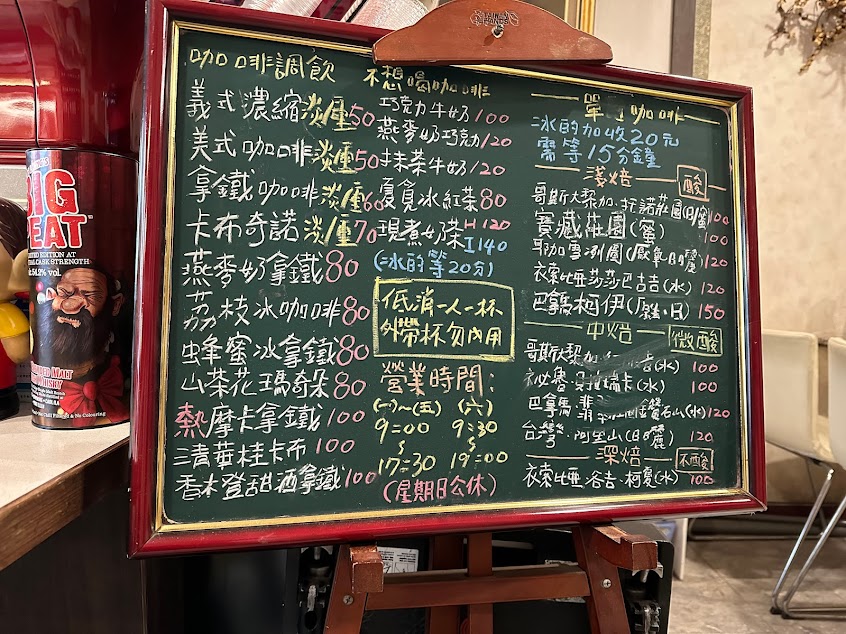 咖啡調飲
義式濃縮淡/重50
美式咖啡淡/重50
拿鐵咖啡淡/重60
卡布奇諾淡/重70
燕麥奶拿鐵80
荔枝冰咖啡80
蜂蜜冰拿鐵80
山茶花瑪奇朵80
熱摩卡拿鐵100
三清華桂卡布100
香木登甜酒拿鐵100
不想喝咖啡
巧克力牛奶100
燕麥奶巧克力120
抹茶牛奶120
優質冰紅茶80
現煮奶茶H120
I140
(冰的等20分)
低消一人一杯
外帶杯勿內用
營業時間:
(一)~(五) (六)
9:00 9:30
~ ~
17:30 19:00
(星期日公休)
單品咖啡
冰的加收20元
需等15分鐘
淺焙 酸
哥斯大黎加 莊園 蜜 100
寶藏莊園(蜜) 100
耶加雪冽 120
衣索比亞 吉(水) 120
巴拿馬 日) 150
中焙 微酸
哥斯大黎加 (水) 100
祕魯 瑞卡(水) 100
巴拿馬 翡 鑽石山(水)120
台灣·阿里山(日曬) 120
深焙 不酸
衣索比亞·谷吉·柯夏(水) 100
BIG
PEAT
EDITION AT
CASK STRENGTH
54.2% vol.
MALT
WHISKY